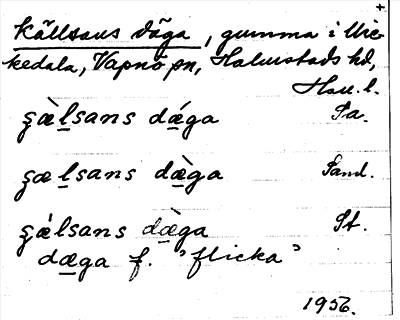 +
Källsans däga, gumma i Mic-
kedala, Vapnö sn, Halmstads hd,
Hall. l.
ʂæ̀lsans dǽga Sa.
ʂælsans dæ̀ga Sand.
ʂǽlsans dæ̀ga St.
dæga f. "flicka"
1956.